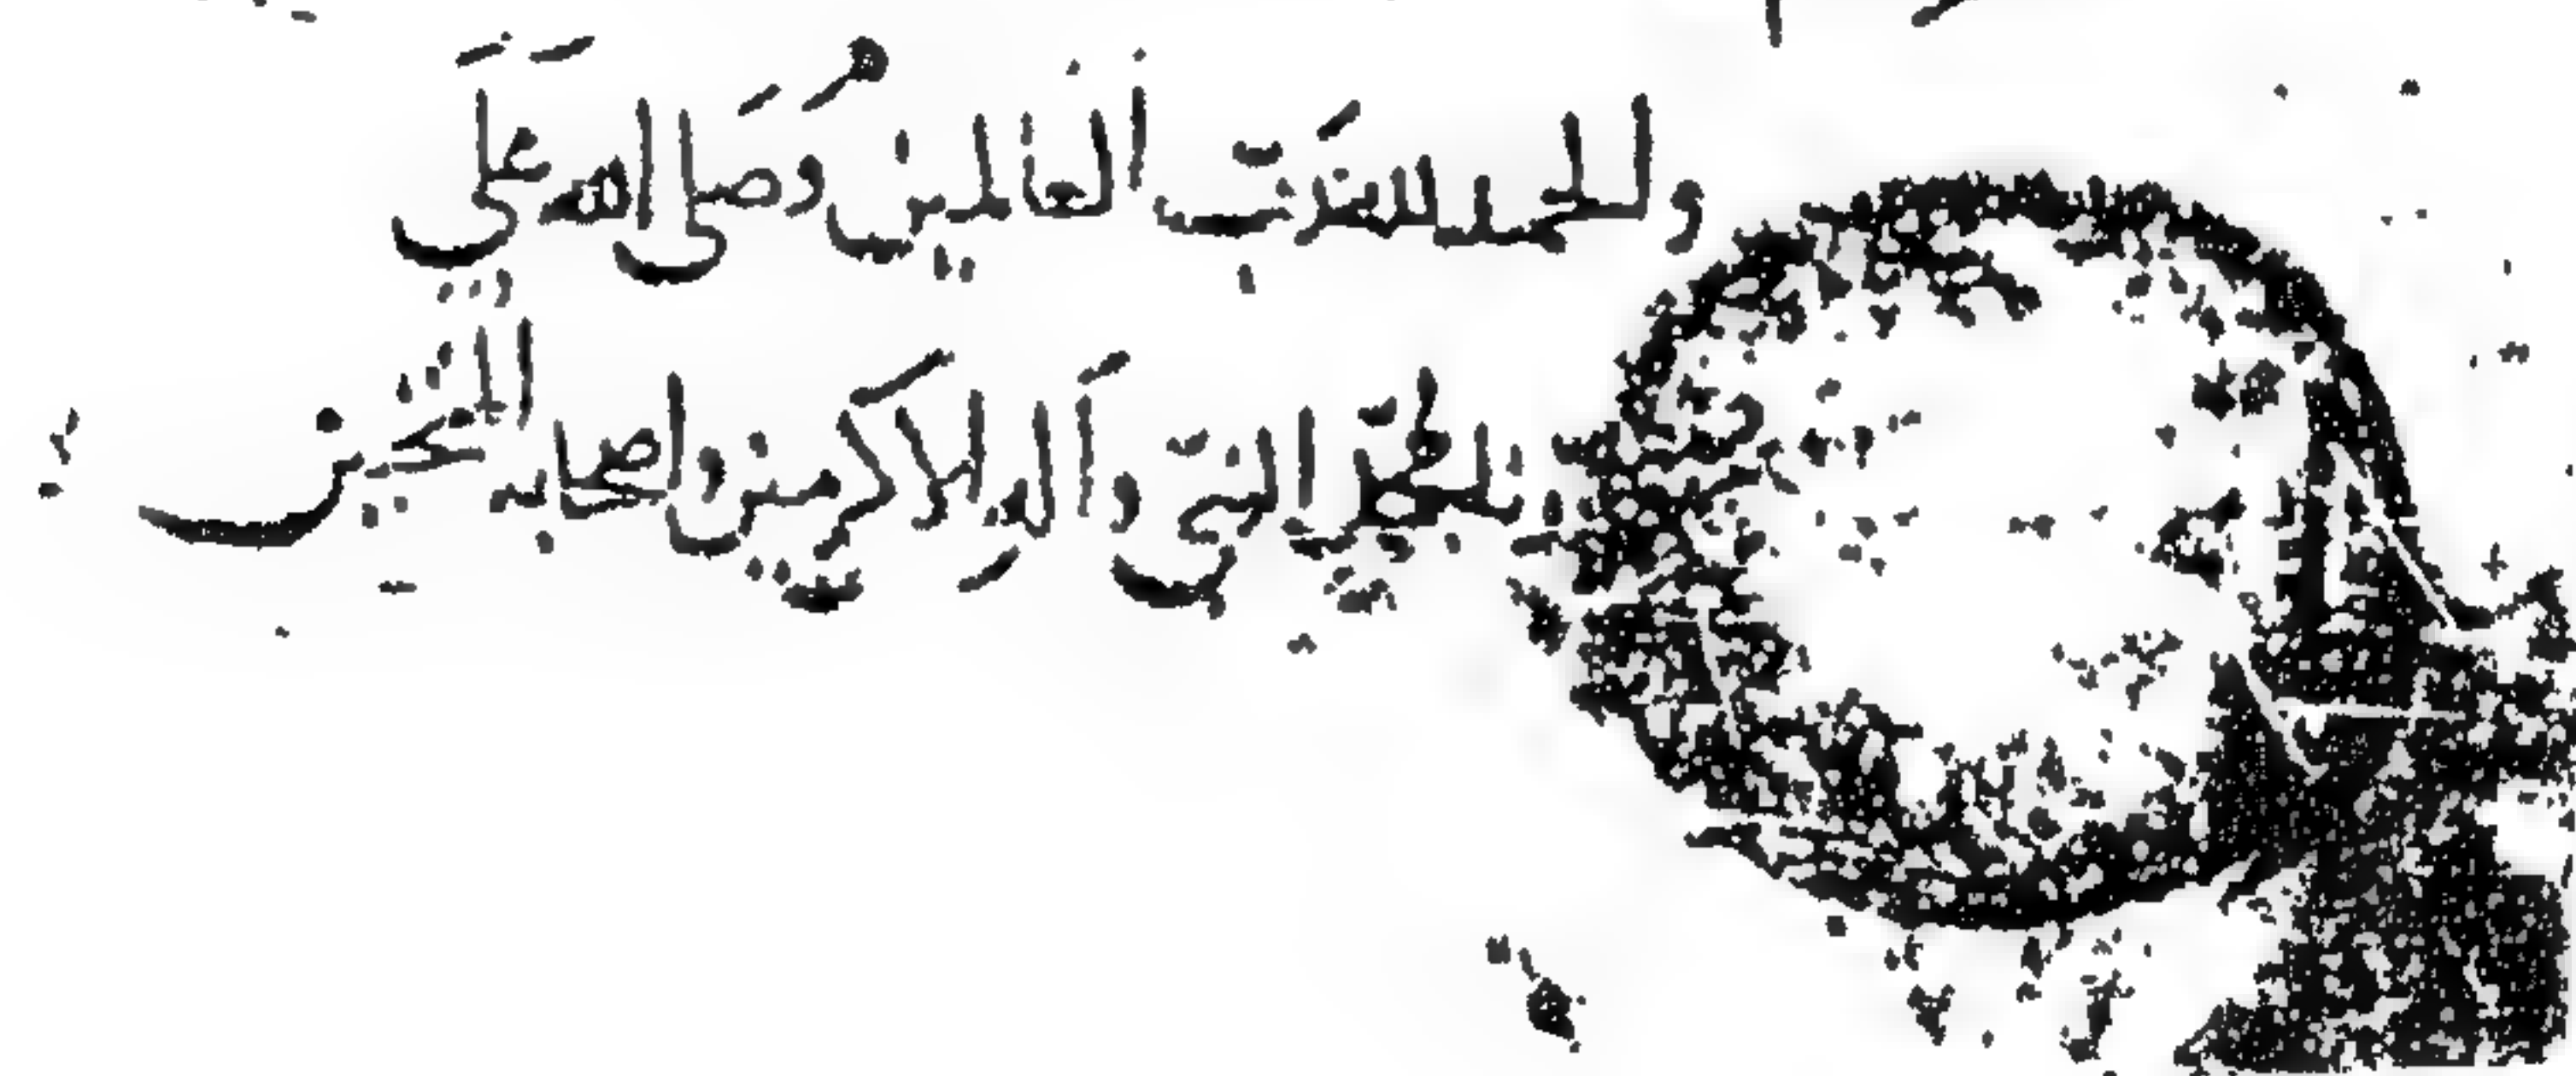 والحمد لله رَبّ العالمين وَصَلى الله عَلَى
محمد النبى وآله الاكرمين واصحابه المنتجبين